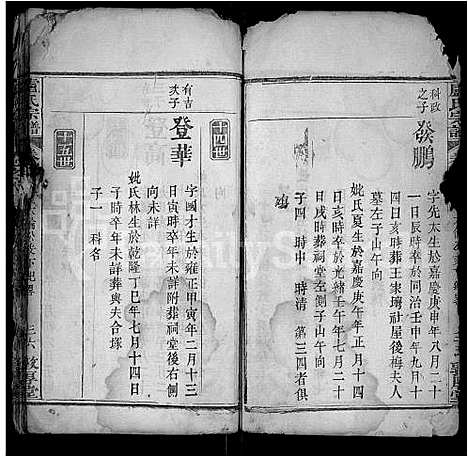 盧氏宗譜
科政
之子
發鵬
字先太生於嘉慶庚申年八月二十
一日辰時卒於同治壬申年九月
四日亥時葬王家塆社屋後梅夫人
墓左子山午向
妣氏夏生於嘉慶庚午年正月十四
日亥時卒於光緒壬午年七月二十
日戌時葬祠堂左側子山午向
子四 時中 時清 第三四者俱
十四世
有吉
次子
登華
字國才生於雍正甲寅年二月十三
日寅時卒年未詳附葬祠堂後右側
向未詳
妣氏林生於乾隆丁巳年七月十四日
子時卒年未詳葬與夫合塚
子一 科名
十五世
氏宗譜
敦厚堂